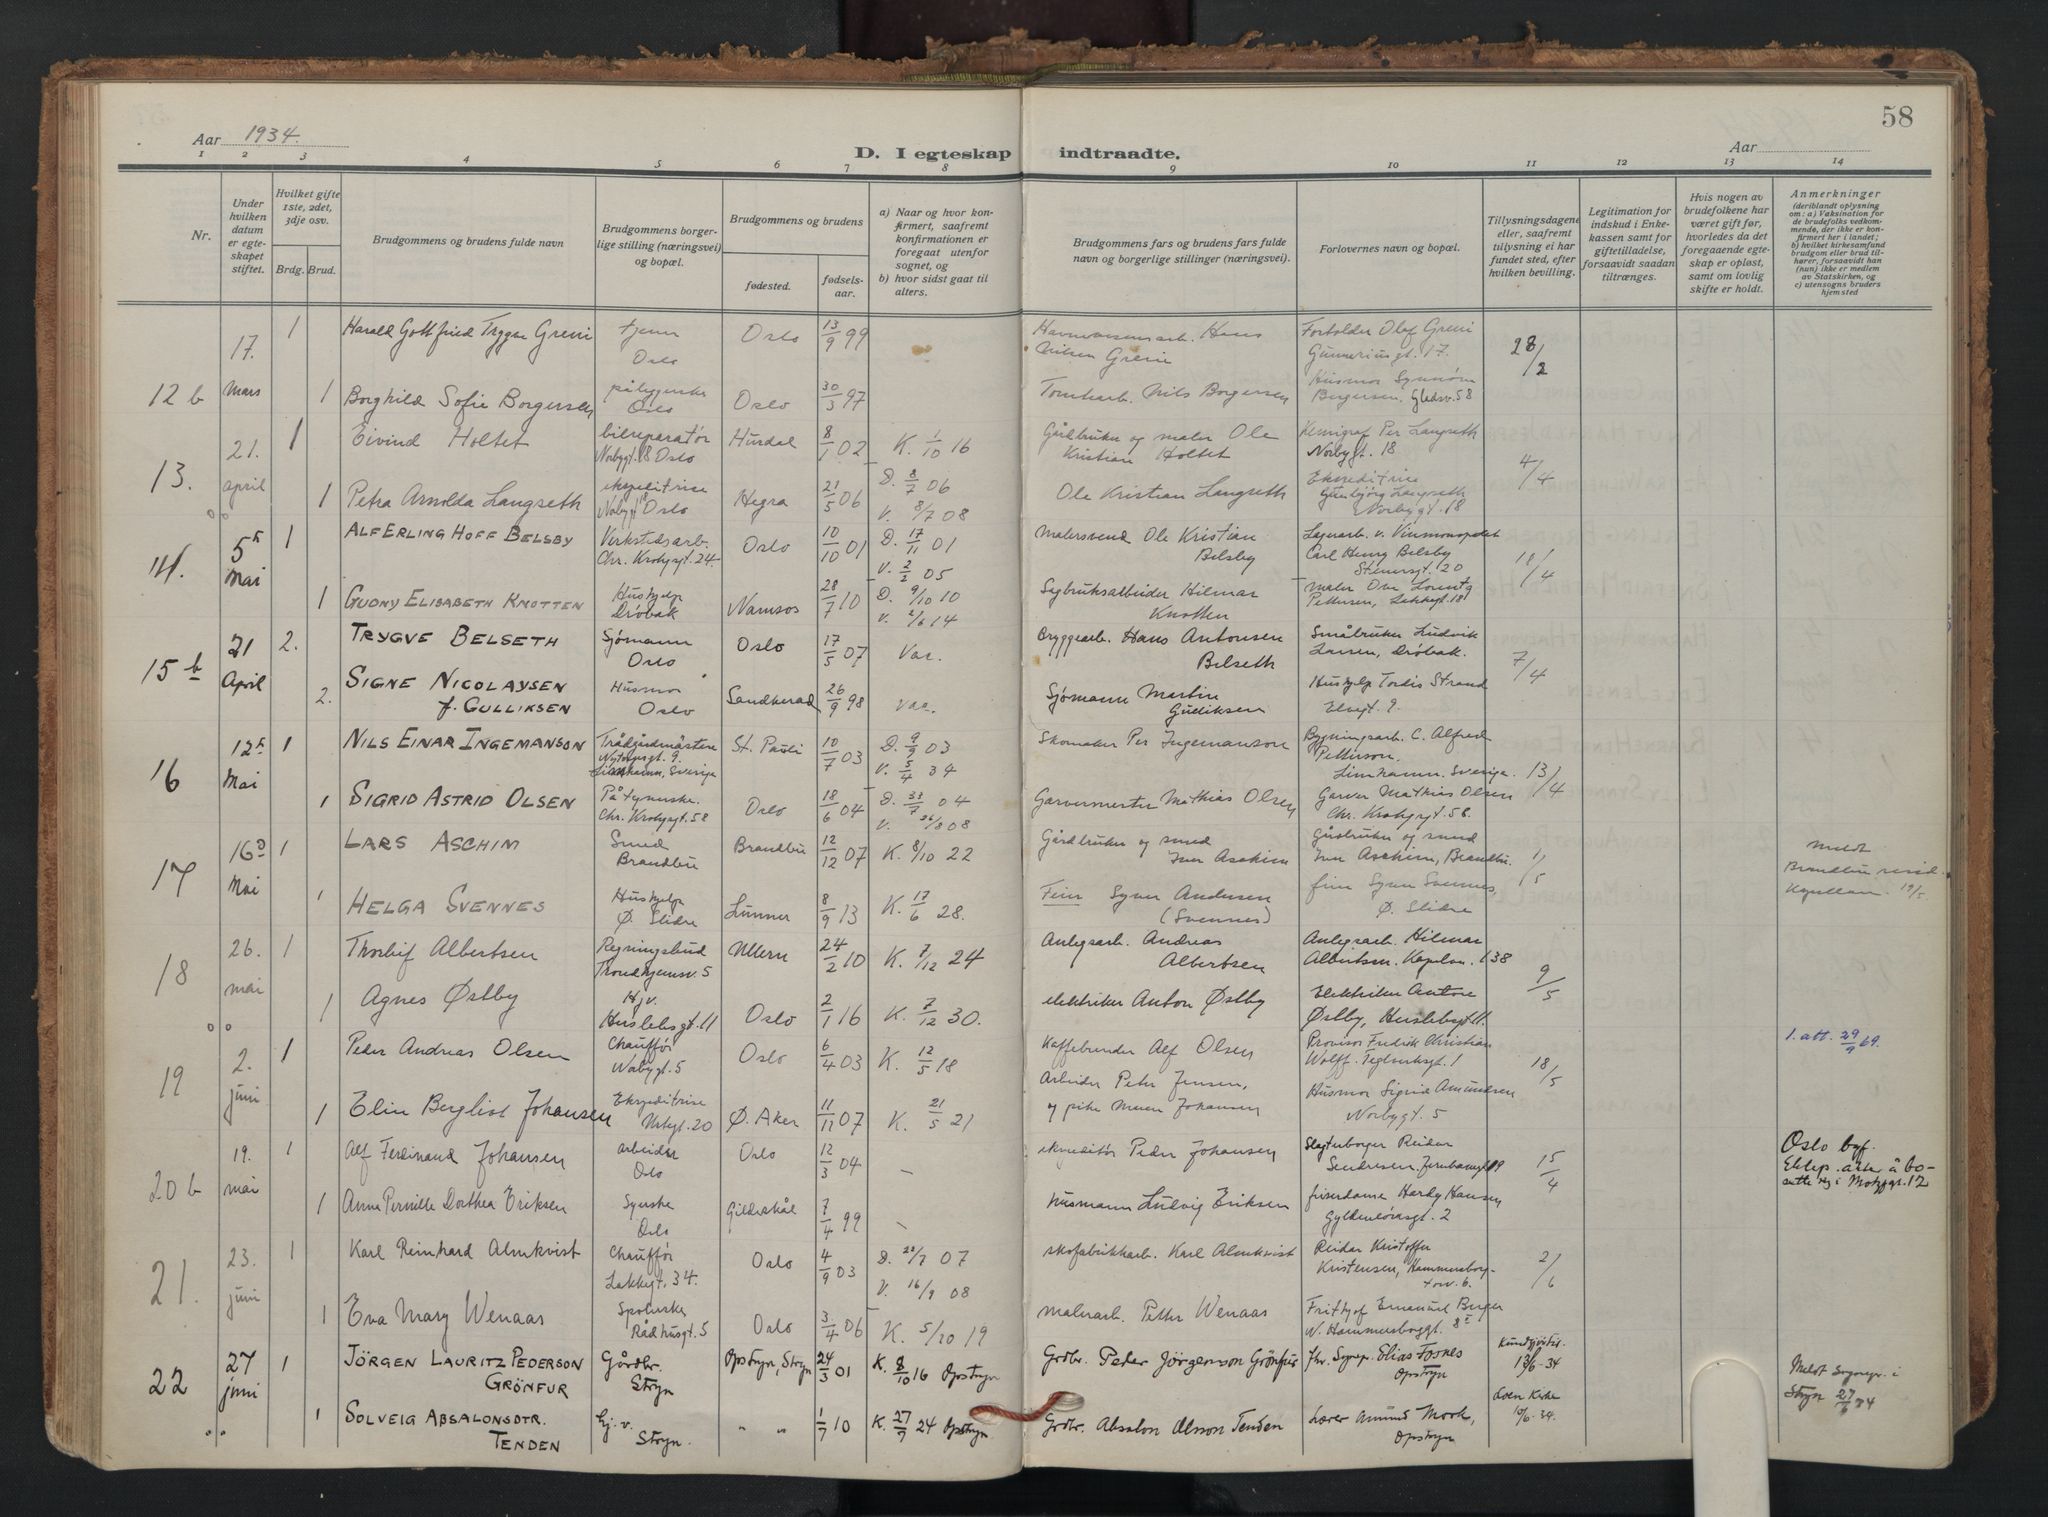 58
Aar 1934.
D. I egteskap indtraadte.
Aar
1 2 3 4 5 6 7 8 9 10 11 12 13 14
Nr.
Under hvilken datum er egteskapet stiftet.
Hvilket gifte 1ste, 2det, 3dje osv.
Brdg. Brud.
Brudgommens og brudens fulde navn
Brudgommens borgerlige stilling (næringsvei) og bopæl.
Brudgommens og brudens
fødested.
fødselsaar.
a) Naar og hvor konfirmert, saafremt konfirmationen er foregaat utenfor sognet, og
b) hvor sidst gaat til alters.
Brudgommens fars og brudens fars fulde navn og borgerlige stillinger (næringsvei).
Forlovernes navn og bopæl.
Tillysningsdagene eller, saafremt tillysning ei har fundet sted, efter hvilken bevilling.
Legitimation for indskud i Enkekassen samt for giftetilladelse, forsaavidt saadan tiltrænges.
Hvis nogen av brudefolkene har været gift før, hvorledes da det foregaaende egteskap er opløst, samt om lovlig skifte er holdt.
Anmerkninger
(deriblandt oplysning om: a) Vaksination for de brudefolks vedkommende, der ikke er konfirmert her i landet; b) hvilket kirkesamfund brudgom eller brud tilhører, forsaavidt han (hun) ikke er medlem av Statskirken, og c) utensogns bruders hjemsted
12 b 17. Mars 1 Harald Gottfried Trygve Greni tjener Oslo Oslo 13/9 99 Hans Nilsen Greni Olaf Greni Gunneriusgt. 17. 28/2
1 Borghild Sofie Borgersen Oslo Oslo 30/3 97 Tomtearb. Nils Borgersen Husmor Synnøve Borgersen, 58
13. 21. april 1 Eivind Holtet bilreparatør Norbygt. 18 Oslo Hurdal 8/1 02 K. 1/10 16 Gårdbruker og maler Ole Kristian Holtet Kemigraf Per Langseth Norbygt. 18 4/4
1 Petra Arnolda Langseth ekspeditrise Norbygt 18 Oslo Hegra 21/5 06 D. 8/7 06 V. 8/7 08 Ole Kristian Langseth Ekspeditrise Gunbjørg Langseth Norbygt. 18
14. 5 Mai 1 Alf Erling Hoff Belsby Verkstedsarb. Chr. Krohgsgt. 24 Oslo 10/10 01 D. 17/11 01 V. 2/2 05 Malersvend Ole Kristian Belsby Lagerarb. v. Vinmonopolet Carl Henry Belsby Stenersgt. 20 10/4
1 Gudny Elisabeth Knotten Hushjelp Drøbak Namsos 28/7 10 D. 9/10 10 V. 2/6 14 Hilmar Knotten Maler Ove Pettersen, Lakkegt. 18
15 b 21 April 2. Trygve Belseth Sjømann Oslo Oslo 17/5 07 Var. Bryggearb. Hans Antonsen Belseth Småbruker Ludvik Larsen, Drøbak. 7/4
2. Signe Nicolaysen f. Gulliksen Husmor Oslo Sandherad 26/9 98 var. Sjømann Martin Gulliksen Hushjelp Tordis Strand Elvegt. 9.
16 12 Mai 1 Nils Einar Ingemanson Trädgårdmästare 9. Limhamn, Sverige St. Pauli 10/7 03 D. 9/9 03 V. 5/4 34 Skomaker Per Ingemanson Bygningsarb. C. Alfred Petterson. Limhamn. Sverige. 13/4
1 Sigrid Astrid Olsen Påsynerske. Chr. Krohgsgt. 58 Oslo 18/6 04 D. 04 V. 08 Garvermester Mathias Olsen Garver Mathias Olsen Chr. Krohgsgt. 58.
17 16 Mai 1 Lars Aschim Smed Brandbu Brandbu 12/12 07 K. 8/10 22 Gårdbruker og smed Iver Aschim Gårdbruker og smed Iver Aschim, Brandbu. 1/5 Meldt Brandbu resid. Kapellan. 19/5.
1 Helga Svennes Hushjelp Ø. Slidre Lunner 8/9 13 K. 17/6 28. Syver Andersen (Svennes) Syver Svennes, Ø. Slidre
18 26. mai 1 Thorleif Albertsen Regningsbud Trondhjemsv. 5 Ullern 24/2 10 K. 7/12 24 Anlegsarb. Andreas Albertsen Anlegsarb. Hilmar Albertsen. 138 9/5
1 Agnes Østby Hj.v. Herslebsgt. 11 Oslo 2/1 16 K. 7/12 30. elektriker Anton Østby Elektriker Anton Østby, Herslebsgt 11.
19 2. juni 1 Peder Andreas Olsen Chauffør Norbygt. 5 Oslo 6/4 03 K. 12/5 18 Kaffebrender Alf Olsen Provisor Fredrik Christian Wolff. Teglverksgt. 1 18/5 1. att. 29/9 69.
1 Elin Bergliot Johansen Ekspeditrise 20 Ø. Aker 11/11 07 K. 21/5 21 Arbeider Peter Jensen, og pike Maren Johansen Husmor Sigrid Amundsen Norbygt. 5
20 b 19. mai 1 Alf Ferdinand Johansen arbeider Oslo Oslo 12/3 04 – ekspeditør Peder Johansen Reidar 15/4 Oslo byf.
1 Anne Pernille Dorthea Eriksen Syerske Oslo Gildeskål 7/4 99 – husmann Ludvig Eriksen frisørdame Hardy Hansen Gyldenløvesgt. 2
21. 23. juni 1 Karl Reinhard Almkvist Chauffør Lakkegt. 34. Oslo 4/9 03 D. 07 V. 16/9 08 skofabrikkarb. Karl Almkvist Reidar Kristoffer Kristensen, Hammersborgtorv. 6. 2/6
1 Eva Mary Wenaas Rådhusgt. 5 Oslo 3/4 06 K. 5/10 19 malerarb. Petter Wenaas Frithjof Emanuel Berger N. Hammersborggt. 8
22 27 juni 1 Jörgen Lauritz Pederson Grönfur Gårdbr. Stryn Opstryn, Stryn 24/3 01 K. 8/10 16 Opstryn Grdbr. Peder Jörgenson Grönfur fhv. Sognepr. Elias Fosnes Opstryn 13/6-34 Meldt Sognepr. i Stryn 27/6 34
1 Solveig Absalonsdtr. Tenden Hj.v. Stryn. " " 1/7 10 K. 27/7 24 Opstryn Grdbr. Absalon Olsson Tenden Lærer Amund Mork, Opstryn Loen Kirke 10/6-34.